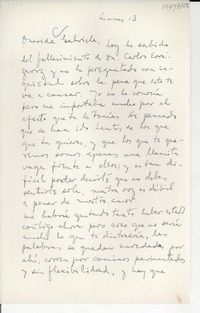 Lunes 13
Querida Gabriela, hoy he sabido
del fallecimiento de Dn. Carlos Errá-
zuriz y me he preguntado con in-
quietud sobre la pena que esto te
va a causar. Yo no le conocía
pero me importaba mucho por el
afecto que tú le tenías. He pensado
que se han ido tantos de los que
que tú quieres, y que los que te que-
remos somos apenas una llamita
vaga frente a ellos; es tan di-
fícil poder decirte que no debes
sentirte sola, matra voz es débil
a pesar de nuestro amor.
Me habría gustado tanto haber estado
contigo ahora pero creo que no sería
mucho lo que te distraería, las
palabras se quedan enredadas por
ahí, corren por caminos pavimentados
y sin flexibilidad, y hay que